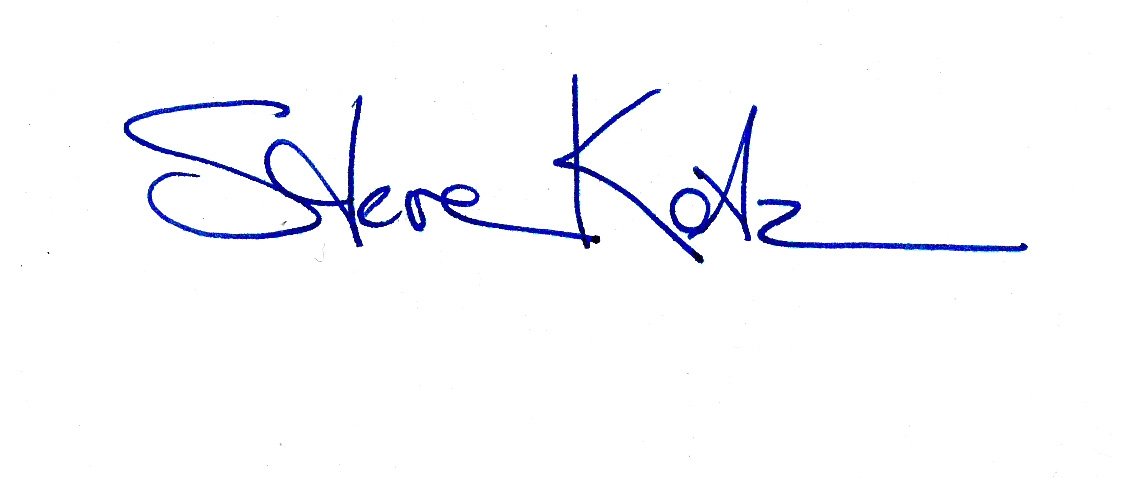 Steve Kotz